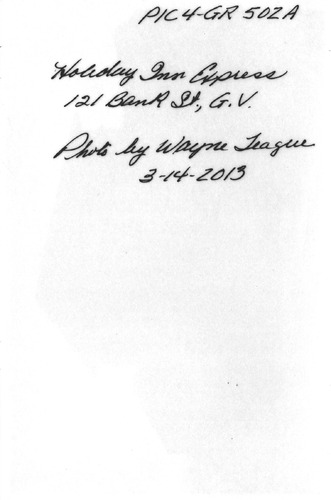 PIC4-GR 502A
Holiday Inn Express
121 Bank St., G.V.
Photo by Wayne Teague
3-14-2013